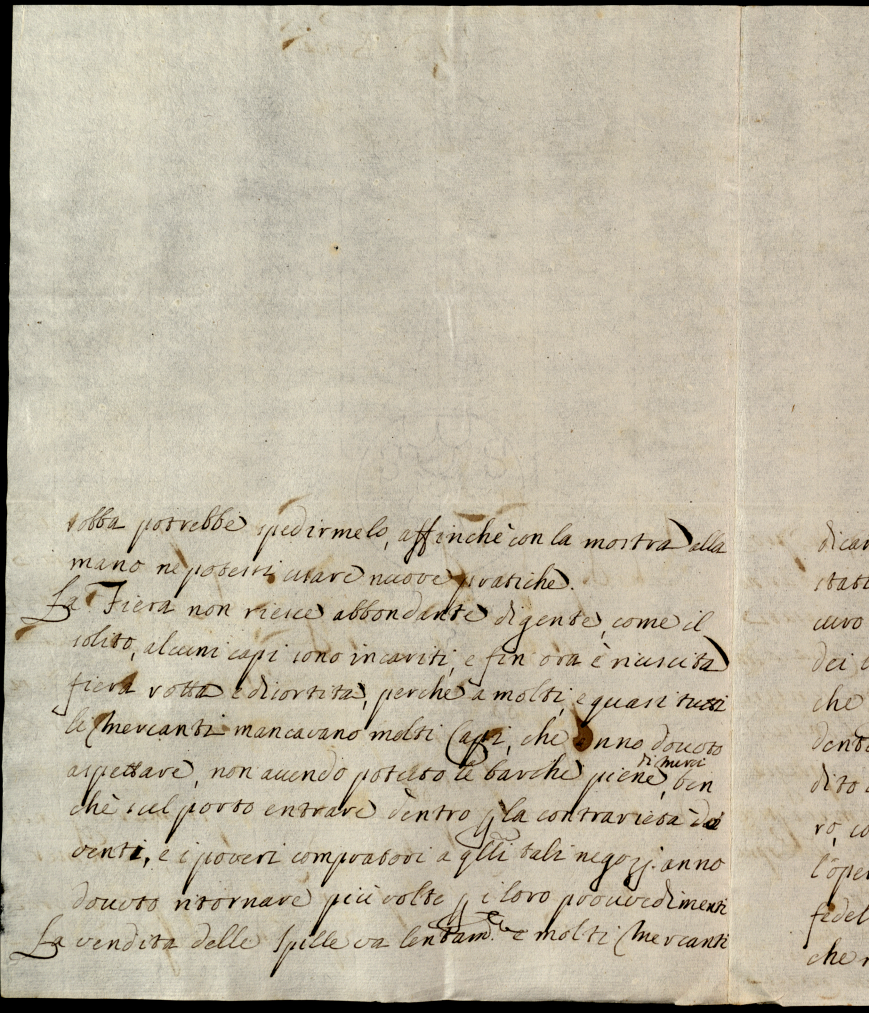 robba potrebbe spedirmelo, affinchè con la mostra alla
mano ne potessi usare nuove pratiche.
La Fiera non riesce abbondante di gente, come il
solito, alcuni capi sono incariti, e fin ora è riuscita
fiera rotta e disortita, perchè a molti, e quasi tutti
li Mercanti mancavano molti Capi, che anno douuto
aspettare, non auendo potuto le barche piene di merci, ben
chè sul porto entrare dentro p la contrarietà dei
venti, e i poveri compratori a qlli tali negozj anno
douuto ritornare più volte p i loro prouedimenti
La vendita delle Spille va lentam.te e molti Mercanti
dicar
stati
curo
dei
che
dent
dito
ro, co
l'oper
fedel
che